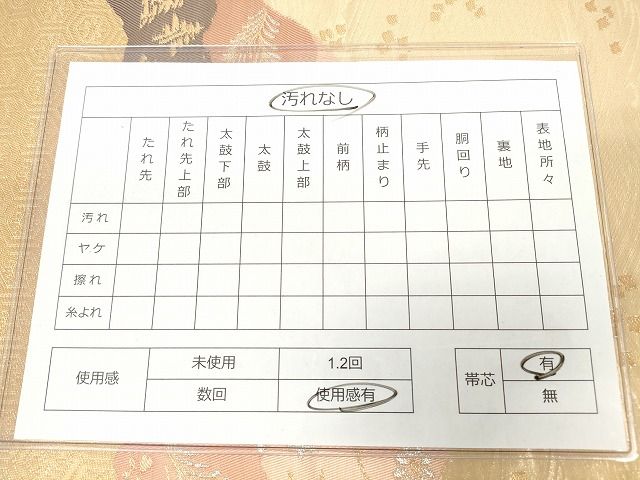 汚れなし
たれ先 たれ先上部 太鼓下部 太鼓 太鼓上部 前柄 柄止まり 手先 胴回り 裏地 表地所々
汚れ
ヤケ
擦れ
糸よれ
使用感 未使用 1.2回
数回 使用感有
帯芯 有
無